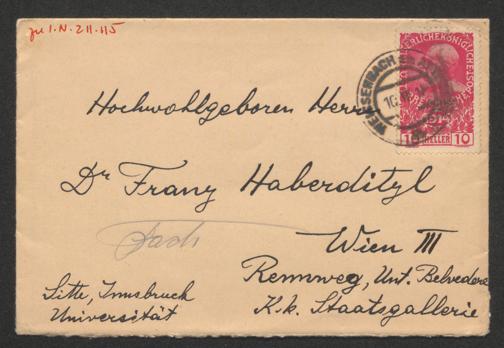 zu I.N. 211.115
KAISERLICHE KÖNIGLICHE
10 HELLER 10
WEISSENBACH
Hochwohlgeboren Herrn
Dr Franz Haberditzl
Wien III
Rennweg, Unt. Belvedere
K.k. Staatsgallerie
Sitte, Innsbruck
Universität